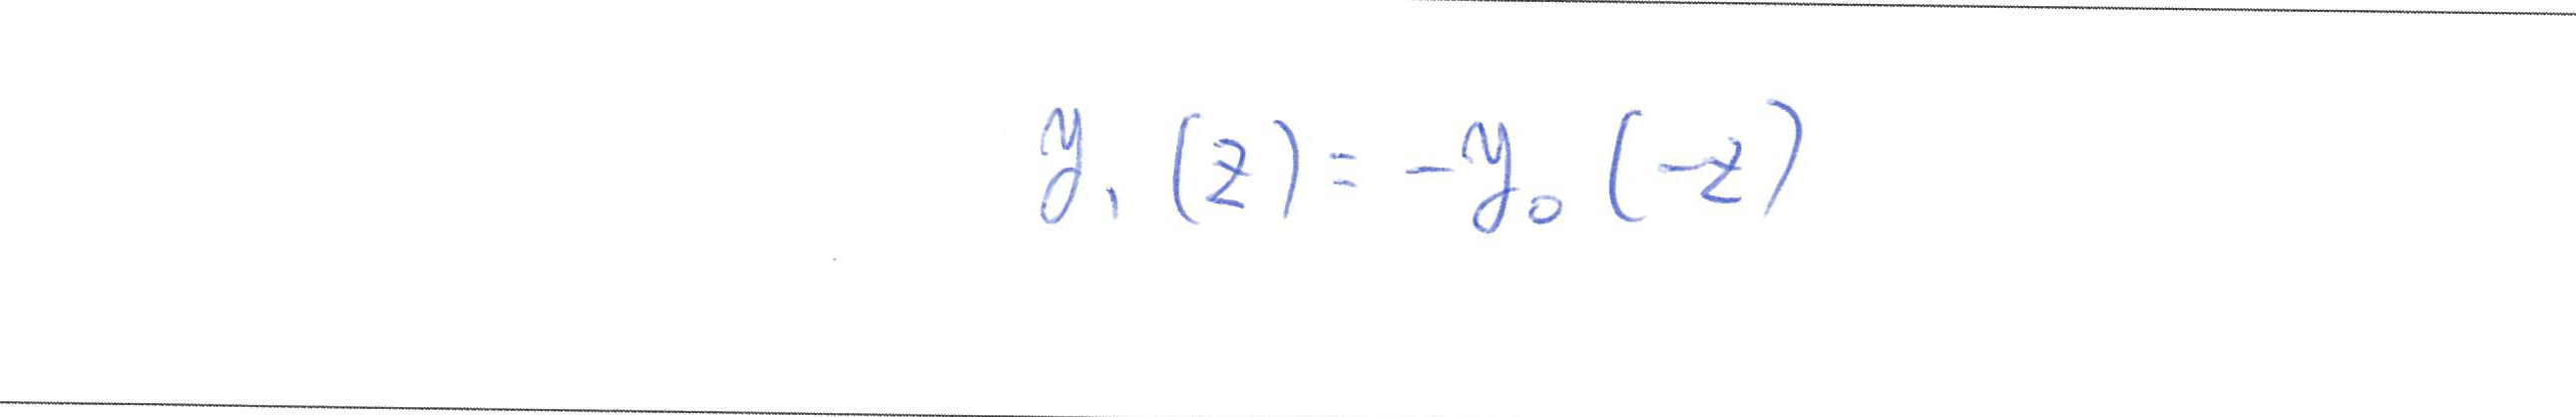 y₁(z) = -y₀(-z)